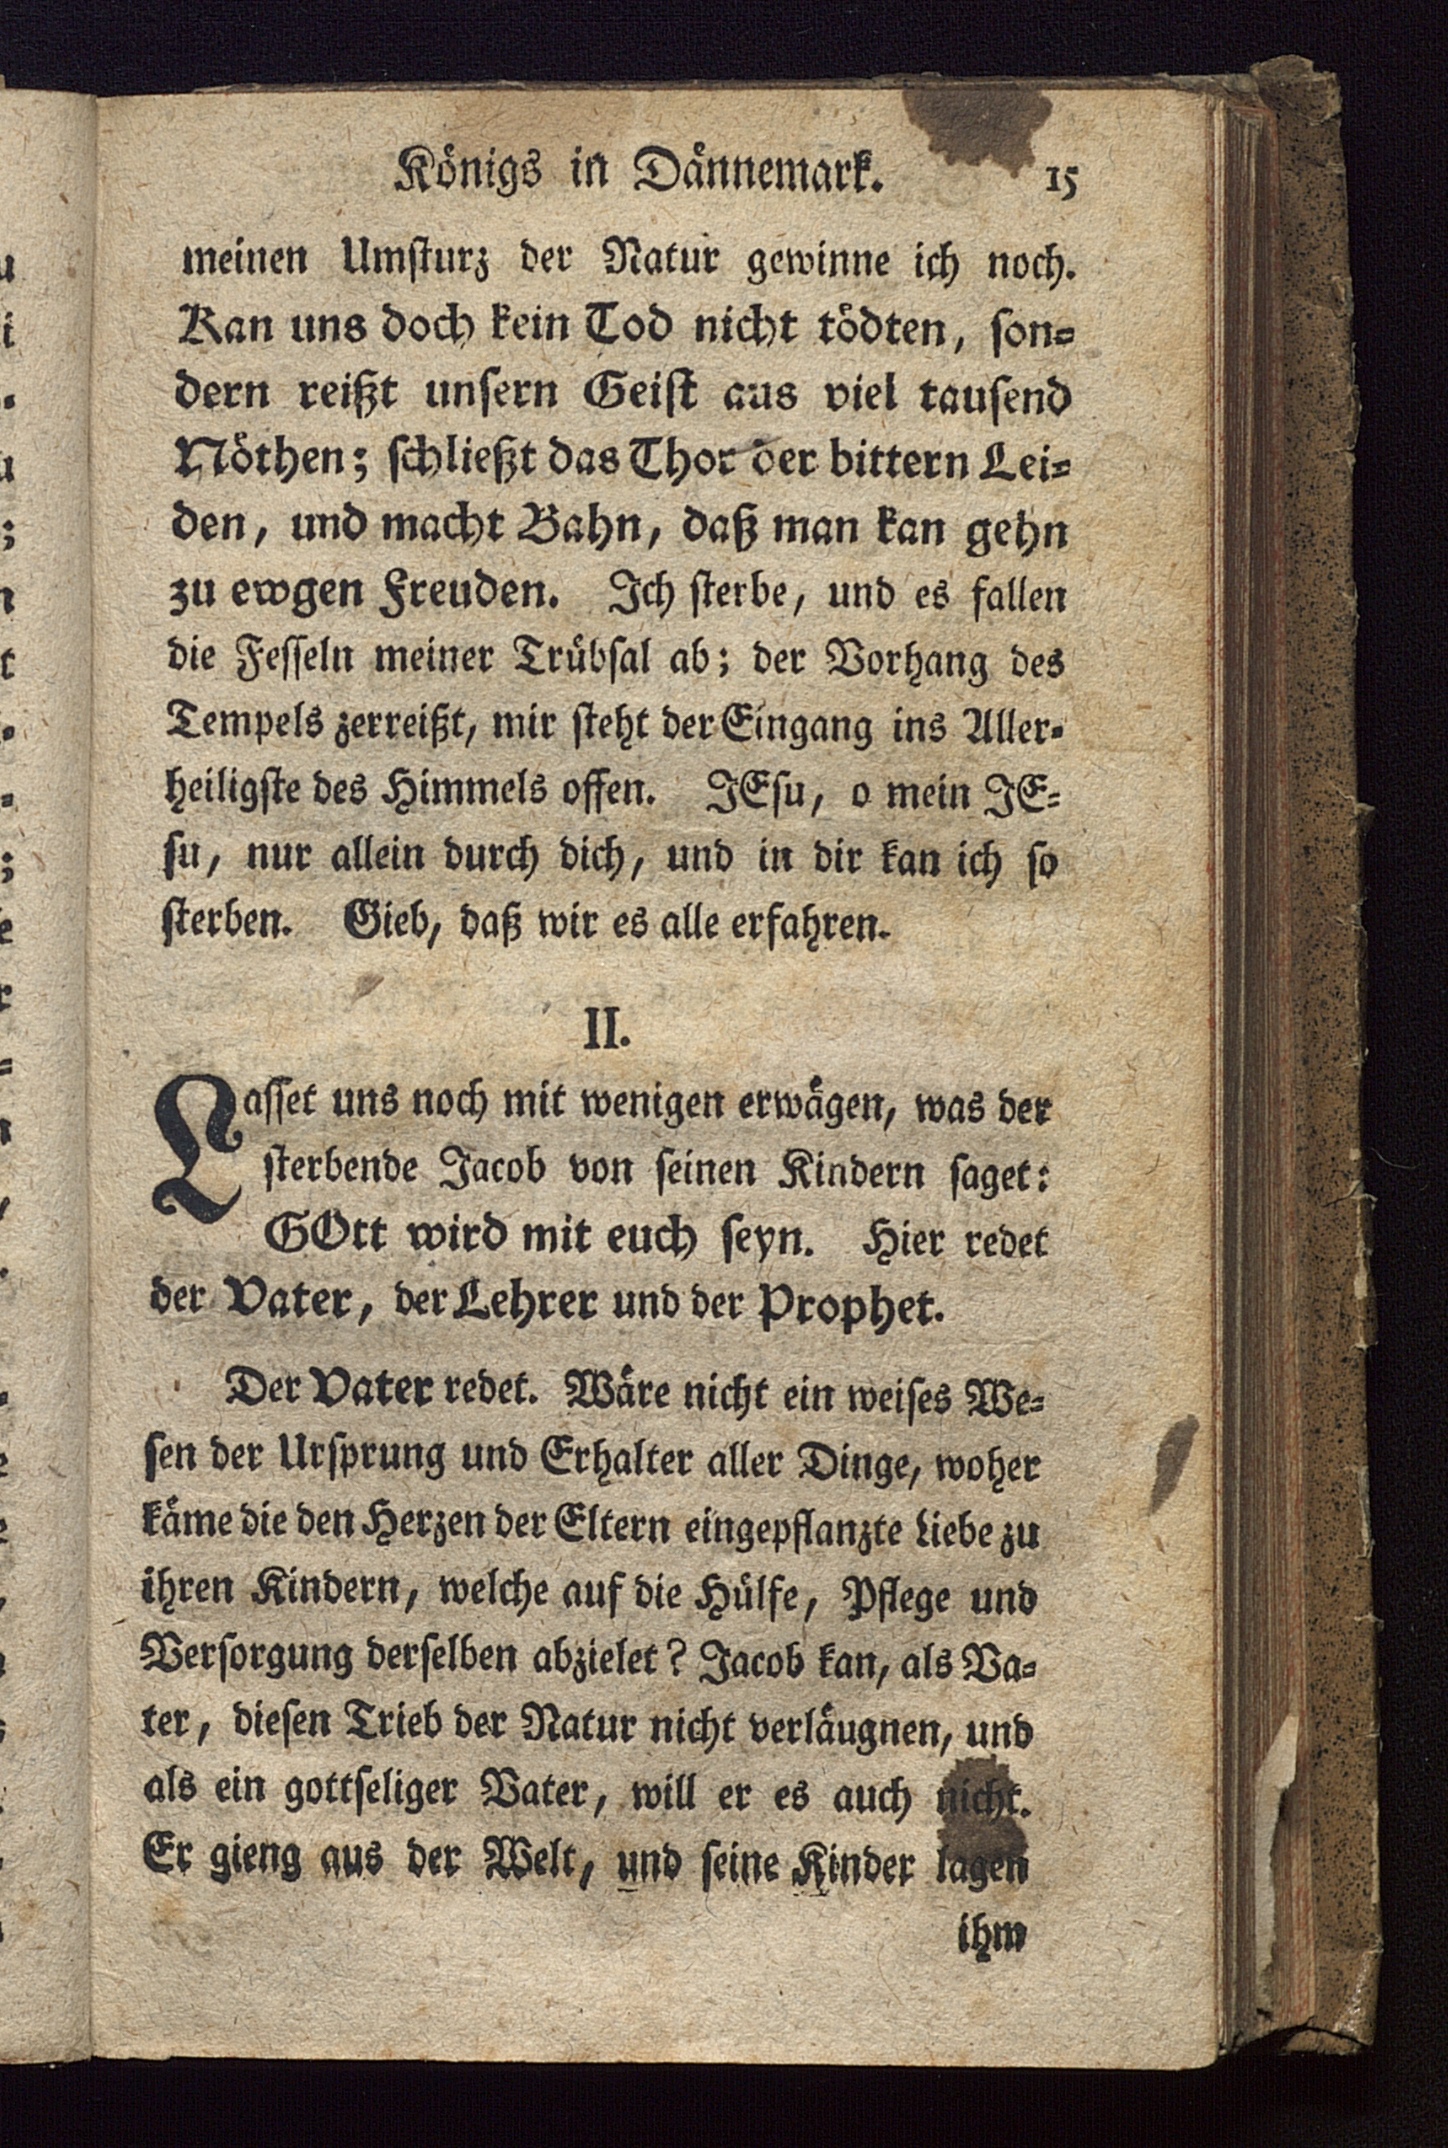 Königs in Dännemark. 15
meinen Umsturz der Natur gewinne ich noch.
Kan uns doch kein Tod nicht tödten, son-
dern reißt unsern Geist aus viel tausend
Nöthen; schließt das Thor der bittern Lei-
den, und macht Bahn, daß man kan gehn
zu ewgen Freuden. Ich sterbe, und es fallen
die Fesseln meiner Trübsal ab; der Vorhang des
Tempels zerreißt, mir steht der Eingang ins Aller-
heiligste des Himmels offen. JEsu, o mein JE-
su, nur allein durch dich, und in dir kan ich so
sterben. Gieb, daß wir es alle erfahren.
II.
Lasset uns noch mit wenigen erwägen, was der
sterbende Jacob von seinen Kindern saget:
GOtt wird mit euch seyn. Hier redet
der Vater, der Lehrer und der Prophet.
Der Vater redet. Wäre nicht ein weises We-
sen der Ursprung und Erhalter aller Dinge, woher
käme die den Herzen der Eltern eingepflanzte Liebe zu
ihren Kindern, welche auf die Hülfe, Pflege und
Versorgung derselben abzielet? Jacob kan, als Va-
ter, diesen Trieb der Natur nicht verläugnen, und
als ein gottseliger Vater, will er es auch nicht.
Er gieng aus der Welt, und seine Kinder lagen
ihm